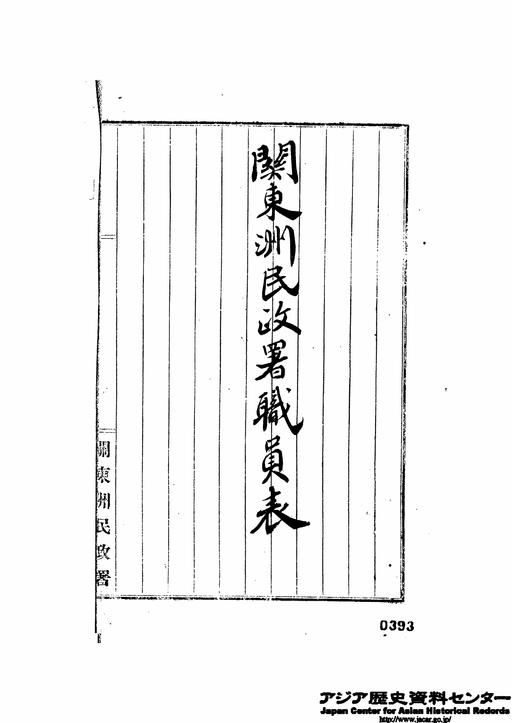 関東洲民政署職員表
關東洲民政署
0393
アジア歴史資料センター
Japan Center for Asian Historical Records
http://www.jacar.go.jp/